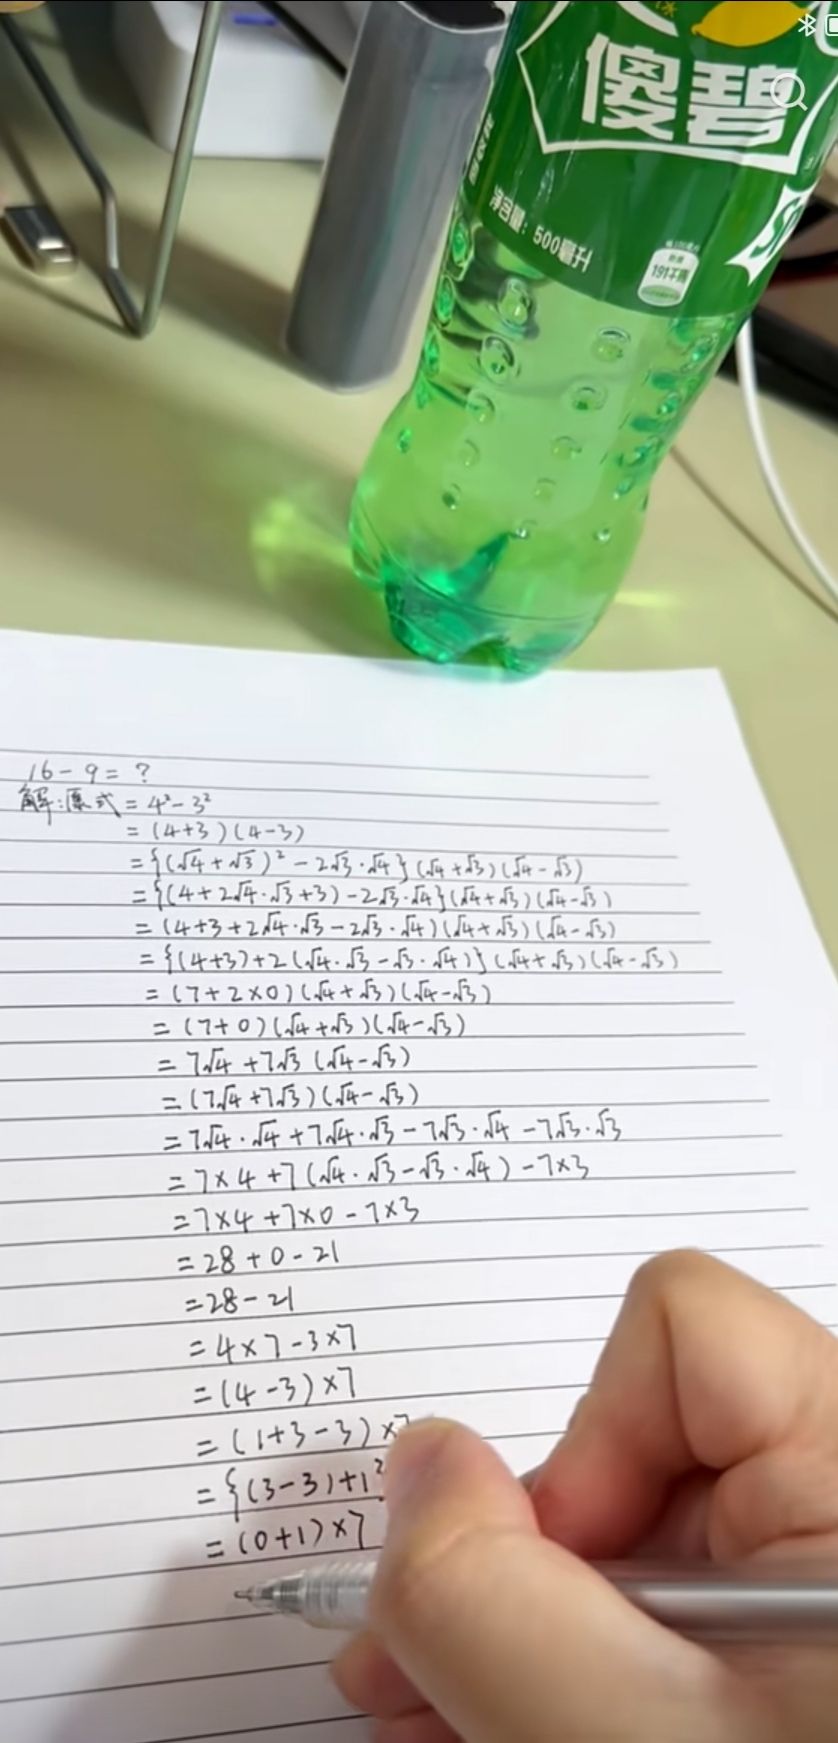 傻碧
净含量：500毫升
191千焦
16-9=?
解:原式=4²-3²
=(4+3)(4-3)
={(√4+√3)²-2√3·√4}(√4+√3)(√4-√3)
={(4+2√4·√3+3)-2√3·√4}(√4+√3)(√4-√3)
=(4+3+2√4·√3-2√3·√4)(√4+√3)(√4-√3)
={(4+3)+2(√4·√3-√3·√4)}(√4+√3)(√4-√3)
=(7+2×0)(√4+√3)(√4-√3)
=(7+0)(√4+√3)(√4-√3)
=7√4+7√3(√4-√3)
=(7√4+7√3)(√4-√3)
=7√4·√4+7√4·√3-7√3·√4-7√3·√3
=7×4+7(√4·√3-√3·√4)-7×3
=7×4+7×0-7×3
=28+0-21
=28-21
=4×7-3×7
=(4-3)×7
=(1+3-3)×7
={(3-3)+1
=(0+1)×7